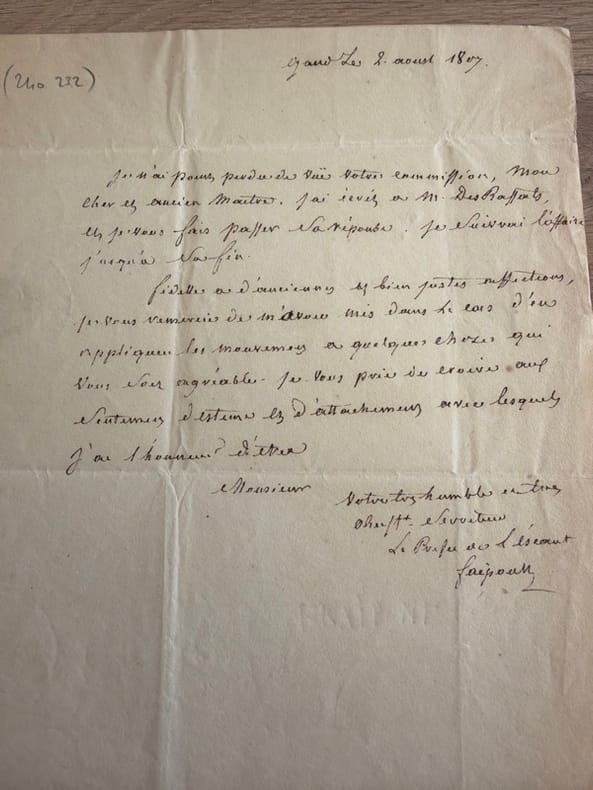 (2110 232)
Gand Le 2. aoust 1807.
Je n'ai point perdu de vüe votre commission, mon
cher et ancien maitre. J'ai écrit a M. Des Rassats,
et je vous fais passer sa réponse. Je suivrai l'affaire
jusqu'à sa fin.
fidelle a d'anciennes et bien justes affections,
je vous remercie de m'avoir mis dans le cas d'en
appliquer les mouvemens a quelque chose qui
vous soit agréable. Je vous prie de croire aux
sentimens d'estime et d'attachement avec lesquels
j'ai l'honneur d'être
Monsieur
Votre très humble et très
obeisst. serviteur
Le Préfet de L'éscaut
faipoult